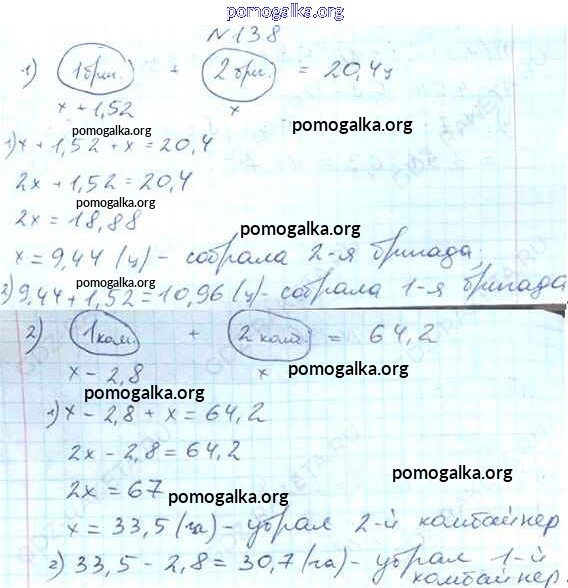 pomogalka.org
N138
1) 1 бриг. + 2 бриг. = 20,4ц
x + 1,52 x
pomogalka.org
pomogalka.org
1) x + 1,52 + x = 20,4
2x + 1,52 = 20,4
2x = 18,88
pomogalka.org
pomogalka.org
x = 9,44 (ц) - собрала 2-я бригада;
pomogalka.org
2) 9,44 + 1,52 = 10,96 (ц) - собрала 1-я бригада
2) 1 ком. + 2 комб. = 64,2
x - 2,8 x
pomogalka.org
pomogalka.org
1) x - 2,8 + x = 64,2
2x - 2,8 = 64,2
pomogalka.org
2x = 67
pomogalka.org
x = 33,5 (га) - убрал 2-й комбайнер
2) 33,5 - 2,8 = 30,7 (га) - убрал 1-й
комбайнер
pomogalka.org